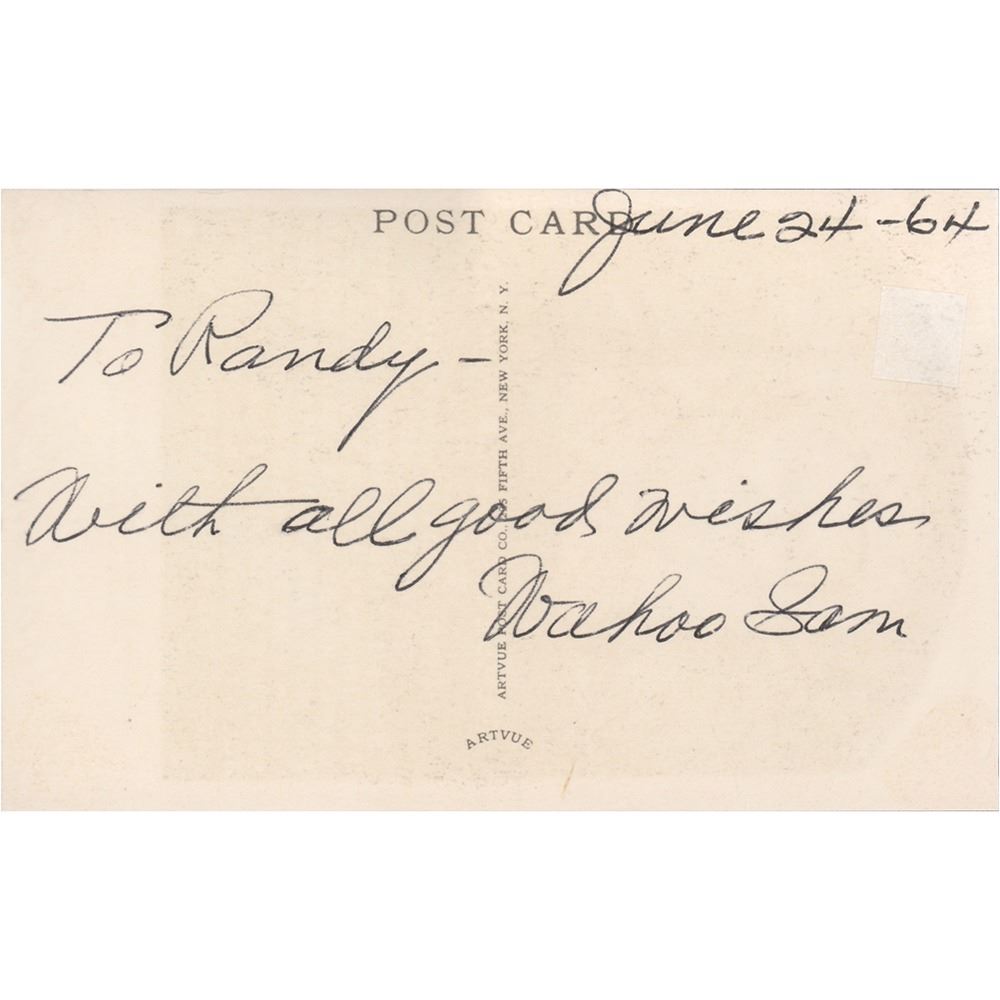 POST CARD
June 24-64
To Randy-
With all good wishes
Wahoo Sam
ARTVUE POST CARD CO., FIFTH AVE., NEW YORK, N. Y.
ARTVUE